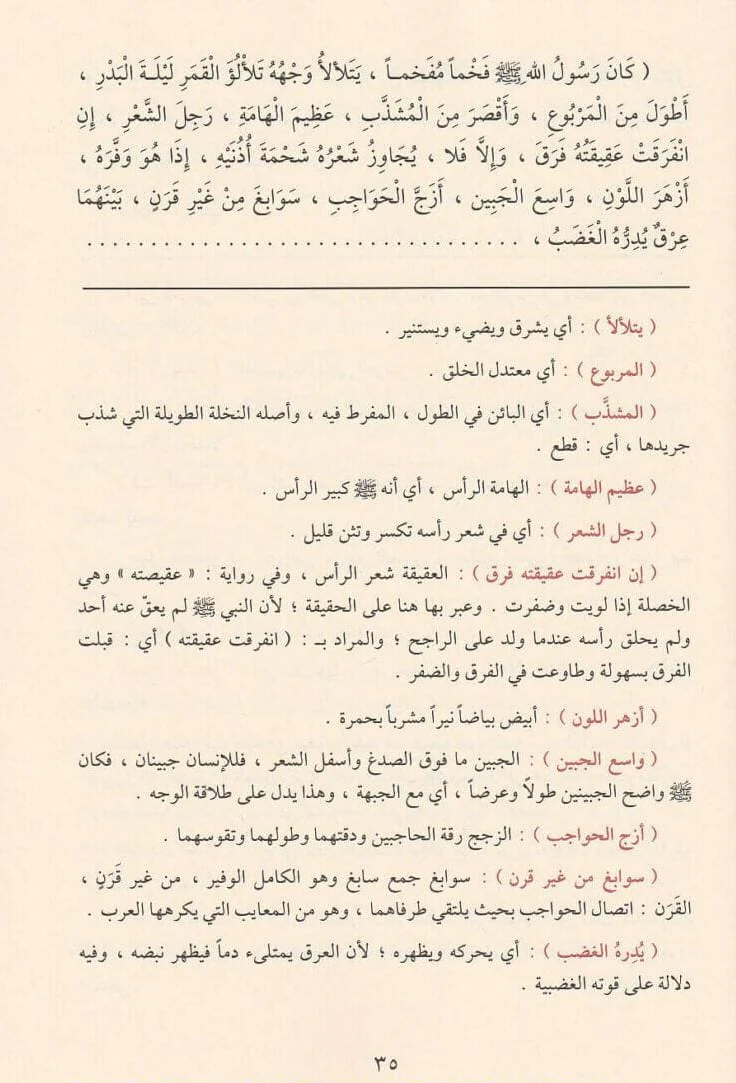 ( كَانَ رَسُولُ اللهِ ﷺ فَخْماً مُفَخماً ، يَتَلَألأُ وَجْهُهُ تَلَأْلُؤَ الْقَمَرِ لَيْلَةَ الْبَدْرِ ،
أَطْوَلَ مِنَ الْمَرْبُوعِ ، وَأَقْصَرَ مِنَ الْمُشَذَّبِ ، عَظِيمَ الْهَامَةِ ، رَجِلَ الشَّعْرِ ، إِنِ
انْفَرَقَتْ عَقِيقَتُهُ فَرَقَ ، وَإِلَّا فَلا ، يُجَاوِزُ شَعْرُهُ شَحْمَةَ أُذُنَيْهِ ، إِذَا هُوَ وَفَّرَهُ ،
أَزْهَرَ اللَّوْنِ ، وَاسِعَ الْجَبِينِ ، أَزَجَّ الْحَوَاجِبِ ، سَوَابِغَ مِنْ غَيْرِ قَرَنٍ ، بَيْنَهُمَا
عِرْقٌ يُدِرُّهُ الْغَضَبُ ، . . . . . . . . . . . . . . . . . . . . . . . . . . . . . . . . . .
( يتلألأ ) : أي يشرق ويضيء ويستنير .
( المربوع ) : أي معتدل الخلق .
( المشذَّب ) : أي البائن في الطول ، المفرط فيه ، وأصله النخلة الطويلة التي شذب
جريدها ، أي : قطع .
( عظيم الهامة ) : الهامة الرأس ، أي أنه ﷺ كبير الرأس .
( رجل الشعر ) : أي في شعر رأسه تكسر وتثن قليل .
( إن انفرقت عقيقته فرق ) : العقيقة شعر الرأس ، وفي رواية : « عقيصته » وهي
الخصلة إذا لويت وضفرت . وعبر بها هنا على الحقيقة ؛ لأن النبي ﷺ لم يعقّ عنه أحد
ولم يحلق رأسه عندما ولد على الراجح ؛ والمراد بـ : ( انفرقت عقيقته ) أي : قبلت
الفرق بسهولة وطاوعت في الفرق والضفر .
( أزهر اللون ) : أبيض بياضاً نيراً مشرباً بحمرة .
( واسع الجبين ) : الجبين ما فوق الصدغ وأسفل الشعر ، فللإنسان جبينان ، فكان
ﷺ واضح الجبينين طولاً وعرضاً ، أي مع الجبهة ، وهذا يدل على طلاقة الوجه .
( أزج الحواجب ) : الزجج رقة الحاجبين ودقتهما وطولهما وتقوسهما .
( سوابغ من غير قرن ) : سوابغ جمع سابغ وهو الكامل الوفير ، من غير قَرَنٍ ،
القَرَن : اتصال الحواجب بحيث يلتقي طرفاهما ، وهو من المعايب التي يكرهها العرب .
( يُدِرهُ الغضب ) : أي يحركه ويظهره ؛ لأن العرق يمتلىء دماً فيظهر نبضه ، وفيه
دلالة على قوته الغضبية .
٣٥